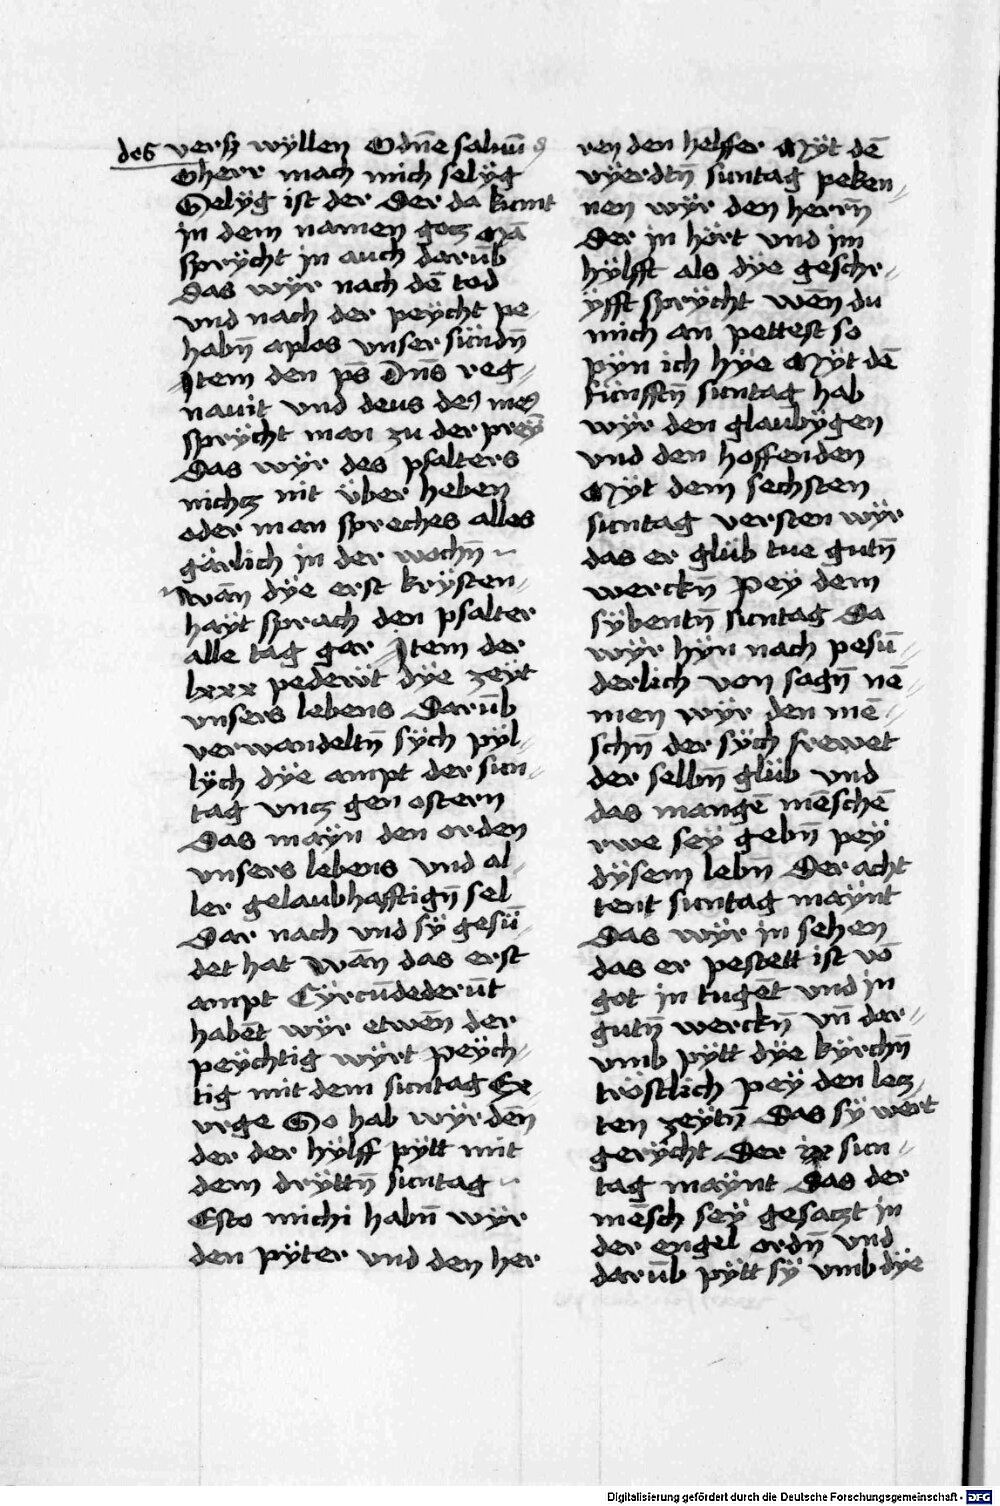 des versz wyͤllen Odn̄e saluū
O herr mach mich selyͤg
Selyͤg ist der Der da kumt
in dem namen gotz Mā
spryͤcht in auch darūb
Das wyͤr nach dē tod
vnd nach der peyͤcht pe-
habn̄ aplas vnser sündn̄
Item den ps̄ Dn̄s reg-
nauit vnd deus de9 me9
spryͤcht man zu der preyͤ
Das wyͤr des psalters
nichtz nit über heben
oder man spreches alles
gärlich in der wochn̄
wān dyͤe erst kryͤsten-
hayͤt sprach den psalter
alle tag gar Item der
lxxx pedewt dyͤe zeyͤt
vnsers lebens Darūb
verwandeltn̄ syͤch pyͤl-
lyͤch dyͤe ampt der sun-
tag vntz gen ostern
Das mayͤn den orden
vnsers lebens vnd al-
ler gelaubhafftign̄ sel
Dar nach vnd syͤ gesü-
det hat wān das erst
ampt Cyͤrcūdederūt
habēt wyͤr etwēn der
peyͤchtig wyͤrt peyͤch-
tig mit dem suntag Ex
urge So hab wyͤr dēn
der der hyͤlff pyͤtt mit
dem dryͤttn̄ suntag
Esto michi habn̄ wyͤr
den pyͤter vnd den her
ren den helffer Myͤt dē
vyͤerdtn̄ suntag peken-
nen wyͤr den herrn̄
Der in hört vnd im
hyͤlfft als dyͤe geschr-
yͤfft spryͤcht wēn du
mich an pettest so
pyͤn ich hyͤe Myͤt dē
fünfftn̄ suntag hab
wyͤr den glaubyͤgen
vnd den hoffenden
Myͤt dem sechsten
suntag versten wyͤr
das er glüb tue gutn̄
werckn̄ Pey dem
syͤbentn̄ suntag Da
wyͤr hyͤn nach pesū-
derlich von sagn̄ nē-
men wyͤr den mē-
schn̄ der syͤch frewet
der selbn̄ glüb vnd
das mangē mēschē
rwe seyͤ gebn̄ peyͤ
dyͤsem lebn̄ Der acht
tent suntag mayͤnt
Das wyͤr in sehen
das er pestett ist vō
got in tugēt vnd in
gutn̄ werckn̄ vn̄ dar-
vmb pyͤtt dyͤe kyͤrchn̄
tröstlich peyͤ den letz-
ten zeyͤtn̄ Das syͤ wert
geryͤcht Der ix sun-
tag mayͤnt Das der
mēsch seyͤ gesatzt in
der engel ordn̄ vnd
darūb pyͤtt syͤ vmb dyͤe
Digitalisierung gefördert durch die Deutsche Forschungsgemeinschaft - DFG